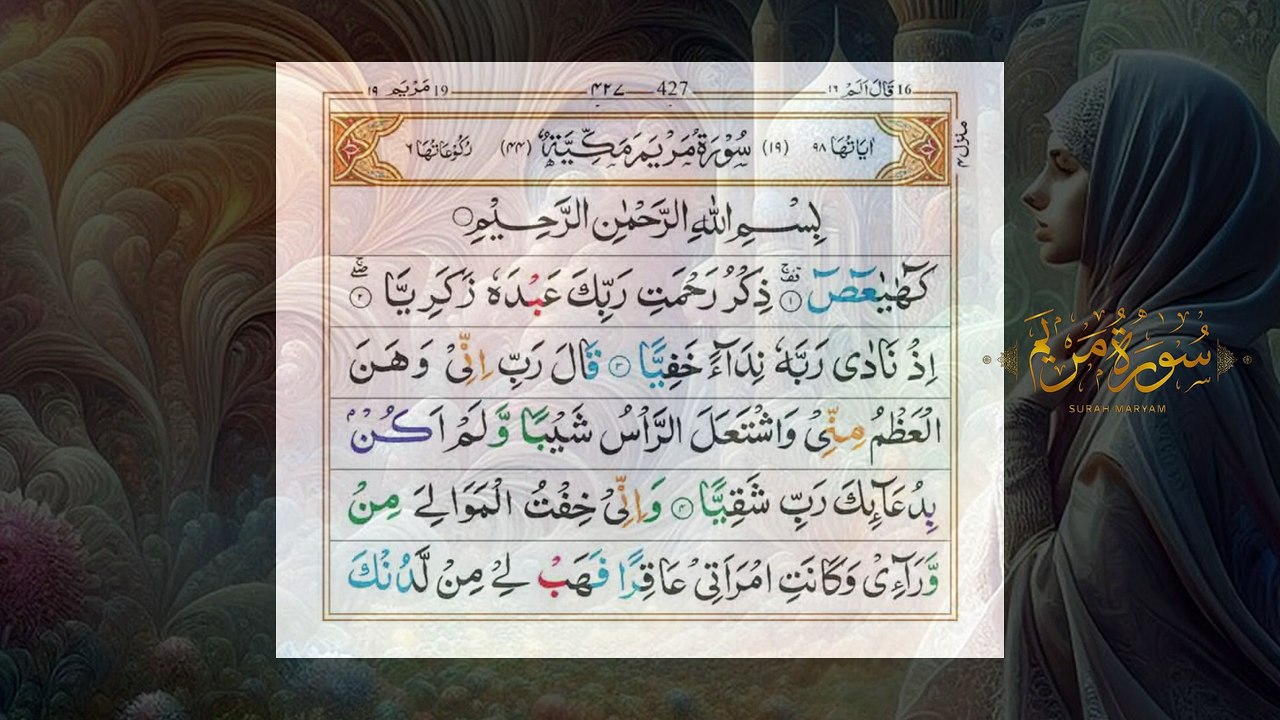 16 قَالَ اَلَمْ ١٦ 427 ۴۲۷ 19 مَرْيَم ١٩
اٰيَاتُهَا ٩٨ (١٩) سُوْرَةُ مَرْيَمَ مَكِّيَّةٌ (۴۴) رُكُوْعَاتُهَا ٦
منزل ۴
بِسْمِ اللّٰهِ الرَّحْمٰنِ الرَّحِيْمِ
كٓهٰيٰعٓصٓ ۚ ١ ذِكْرُ رَحْمَتِ رَبِّكَ عَبْدَهٗ زَكَرِيَّا ۖۚ ٢
اِذْ نَادٰى رَبَّهٗ نِدَآءً خَفِيًّا ٣ قَالَ رَبِّ اِنِّىْ وَهَنَ
الْعَظْمُ مِنِّىْ وَاشْتَعَلَ الرَّاْسُ شَيْبًا وَّلَمْ اَكُنْۢ
بِدُعَآئِكَ رَبِّ شَقِيًّا ۴ وَاِنِّىْ خِفْتُ الْمَوَالِىَ مِنْ
وَّرَآءِىْ وَكَانَتِ امْرَاَتِىْ عَاقِرًا فَهَبْ لِىْ مِنْ لَّدُنْكَ
سُورَةُ مَرْيَم
SURAH MARYAM